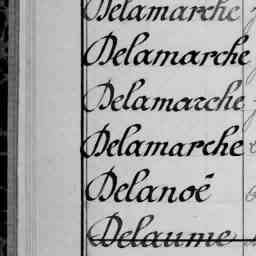 Delamarche
Delamarche
Delamarche
Delamarche
Delanoë
Delaume